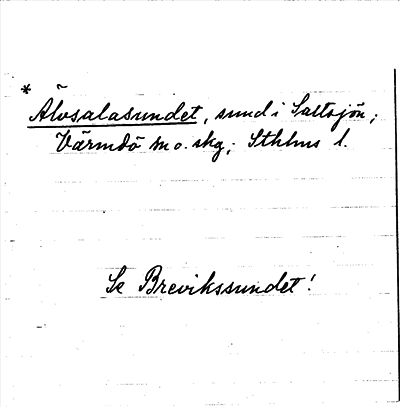 * Älvsalasundet, sund i Saltsjön;
Värmdö m o. skg; Sthlms l.
Se Brevikssundet!